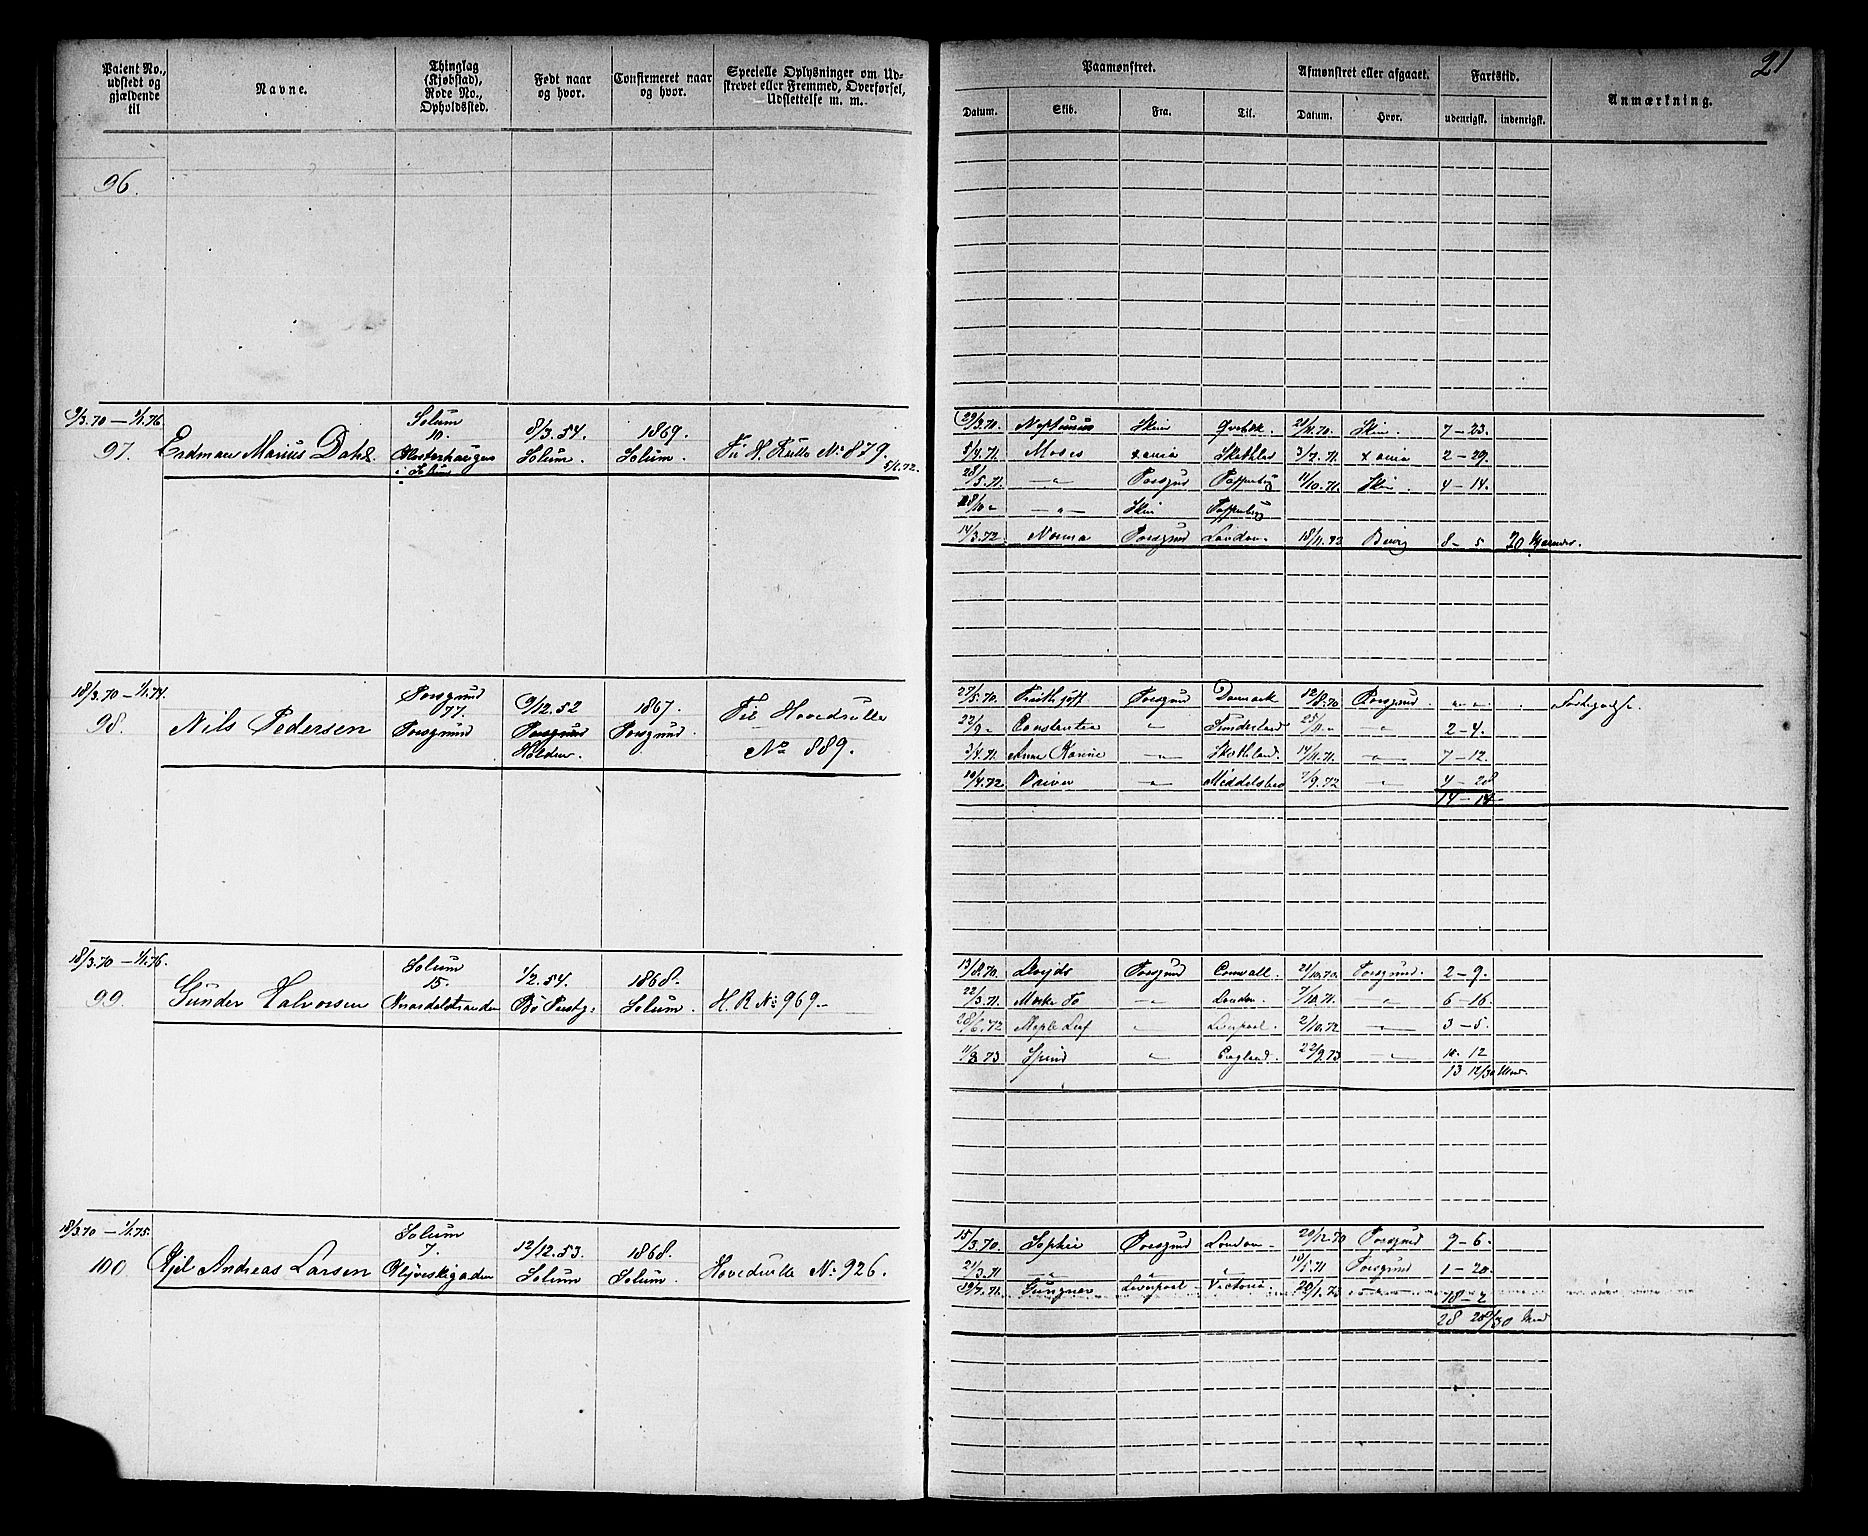 21
Patent No., udstedt og gjældende til
Navne.
Thinglag (Kjøbstad), Rode No., Opholdssted.
Født naar og hvor.
Confirmeret naar og hvor.
Specielle Oplysninger om Udskrevet eller Fremmed, Overførsel, Udslettelse m. m.
Paamønstret.
Afmønstret eller afgaaet.
Fartstid.
Anmærkning.
Datum. Skib. Fra. Til. Datum. Hvor. udenrigsk. indenrigsk.
96.
9/3.70 — 1/1.76.
97. Erdman Marius Dahl.
Solum
10.
Klosterhaugen
i Solum
8/3.54.
Solum.
1869.
Solum.
Til H. Rulle No 879.
5/1.72.
29/3.70. Neptunus Skien 21/11.70. Skien. 7-23.
5/4.71. Moses xania 3/7.71. xania 2-29.
28/5.71. —"— Porsgrund 11/10.71. Skien. 4-14.
18/10 " —"— Skien
14/3.72. Norma Porsgrund London. 18/11.72 8-5.
18/3.70 — 1/1.74.
98. Nils Pedersen
Porsgrund
77.
Porsgrund
9/12.52
Porsgrund
Holden.
1867.
Porsgrund.
Til Hovedrulle
No 889.
27/5.70. Porsgrund Danmark 12/8.70 Porsgrund. " "
22/9 " Constantia " Sunderland 25/11 " " 2-4.
3/4.71. Anne Karine —"— Skotland. 14/11.71. —"— 7-12.
10/4.72. —"— Meddelsbro 7/9.72 —"— 4-28
14-14
18/3.70 — 1/1.76.
99. Gunder Halvorsen
Solum
15.
Knardalstranden
1/2.54.
Bø Præstg:
1868.
Solum.
H. R No 969.
13/8.70. Lloyds Porsgrund Cornvall. 21/10.70. Porsgrund. 2-9.
22/3.71. —"— London. 7/10.71. " 6-16.
28/6.72 Maple Leaf " Liverpool. 2/10.72 —"— 3-5.
11/3 73 " England. 22/9.73 —"— 12
13 12/30 Mnd.
18/3.70 — 1/1.75.
100. Kjel Andreas Larsen
Solum
7.
Kleiveskigaden
12/12.53.
Solum
1868.
Solum.
Hovedrulle No 926.
15/3.70. Sophie Porsgrund London 20/12.70 Porsgrund 9-6.
21/3.71 " " " 10/5.71 Porsgrund 1-20.
Gungner Liverpool Victoria 20/1.73 18-2
28 28/30 Mnd